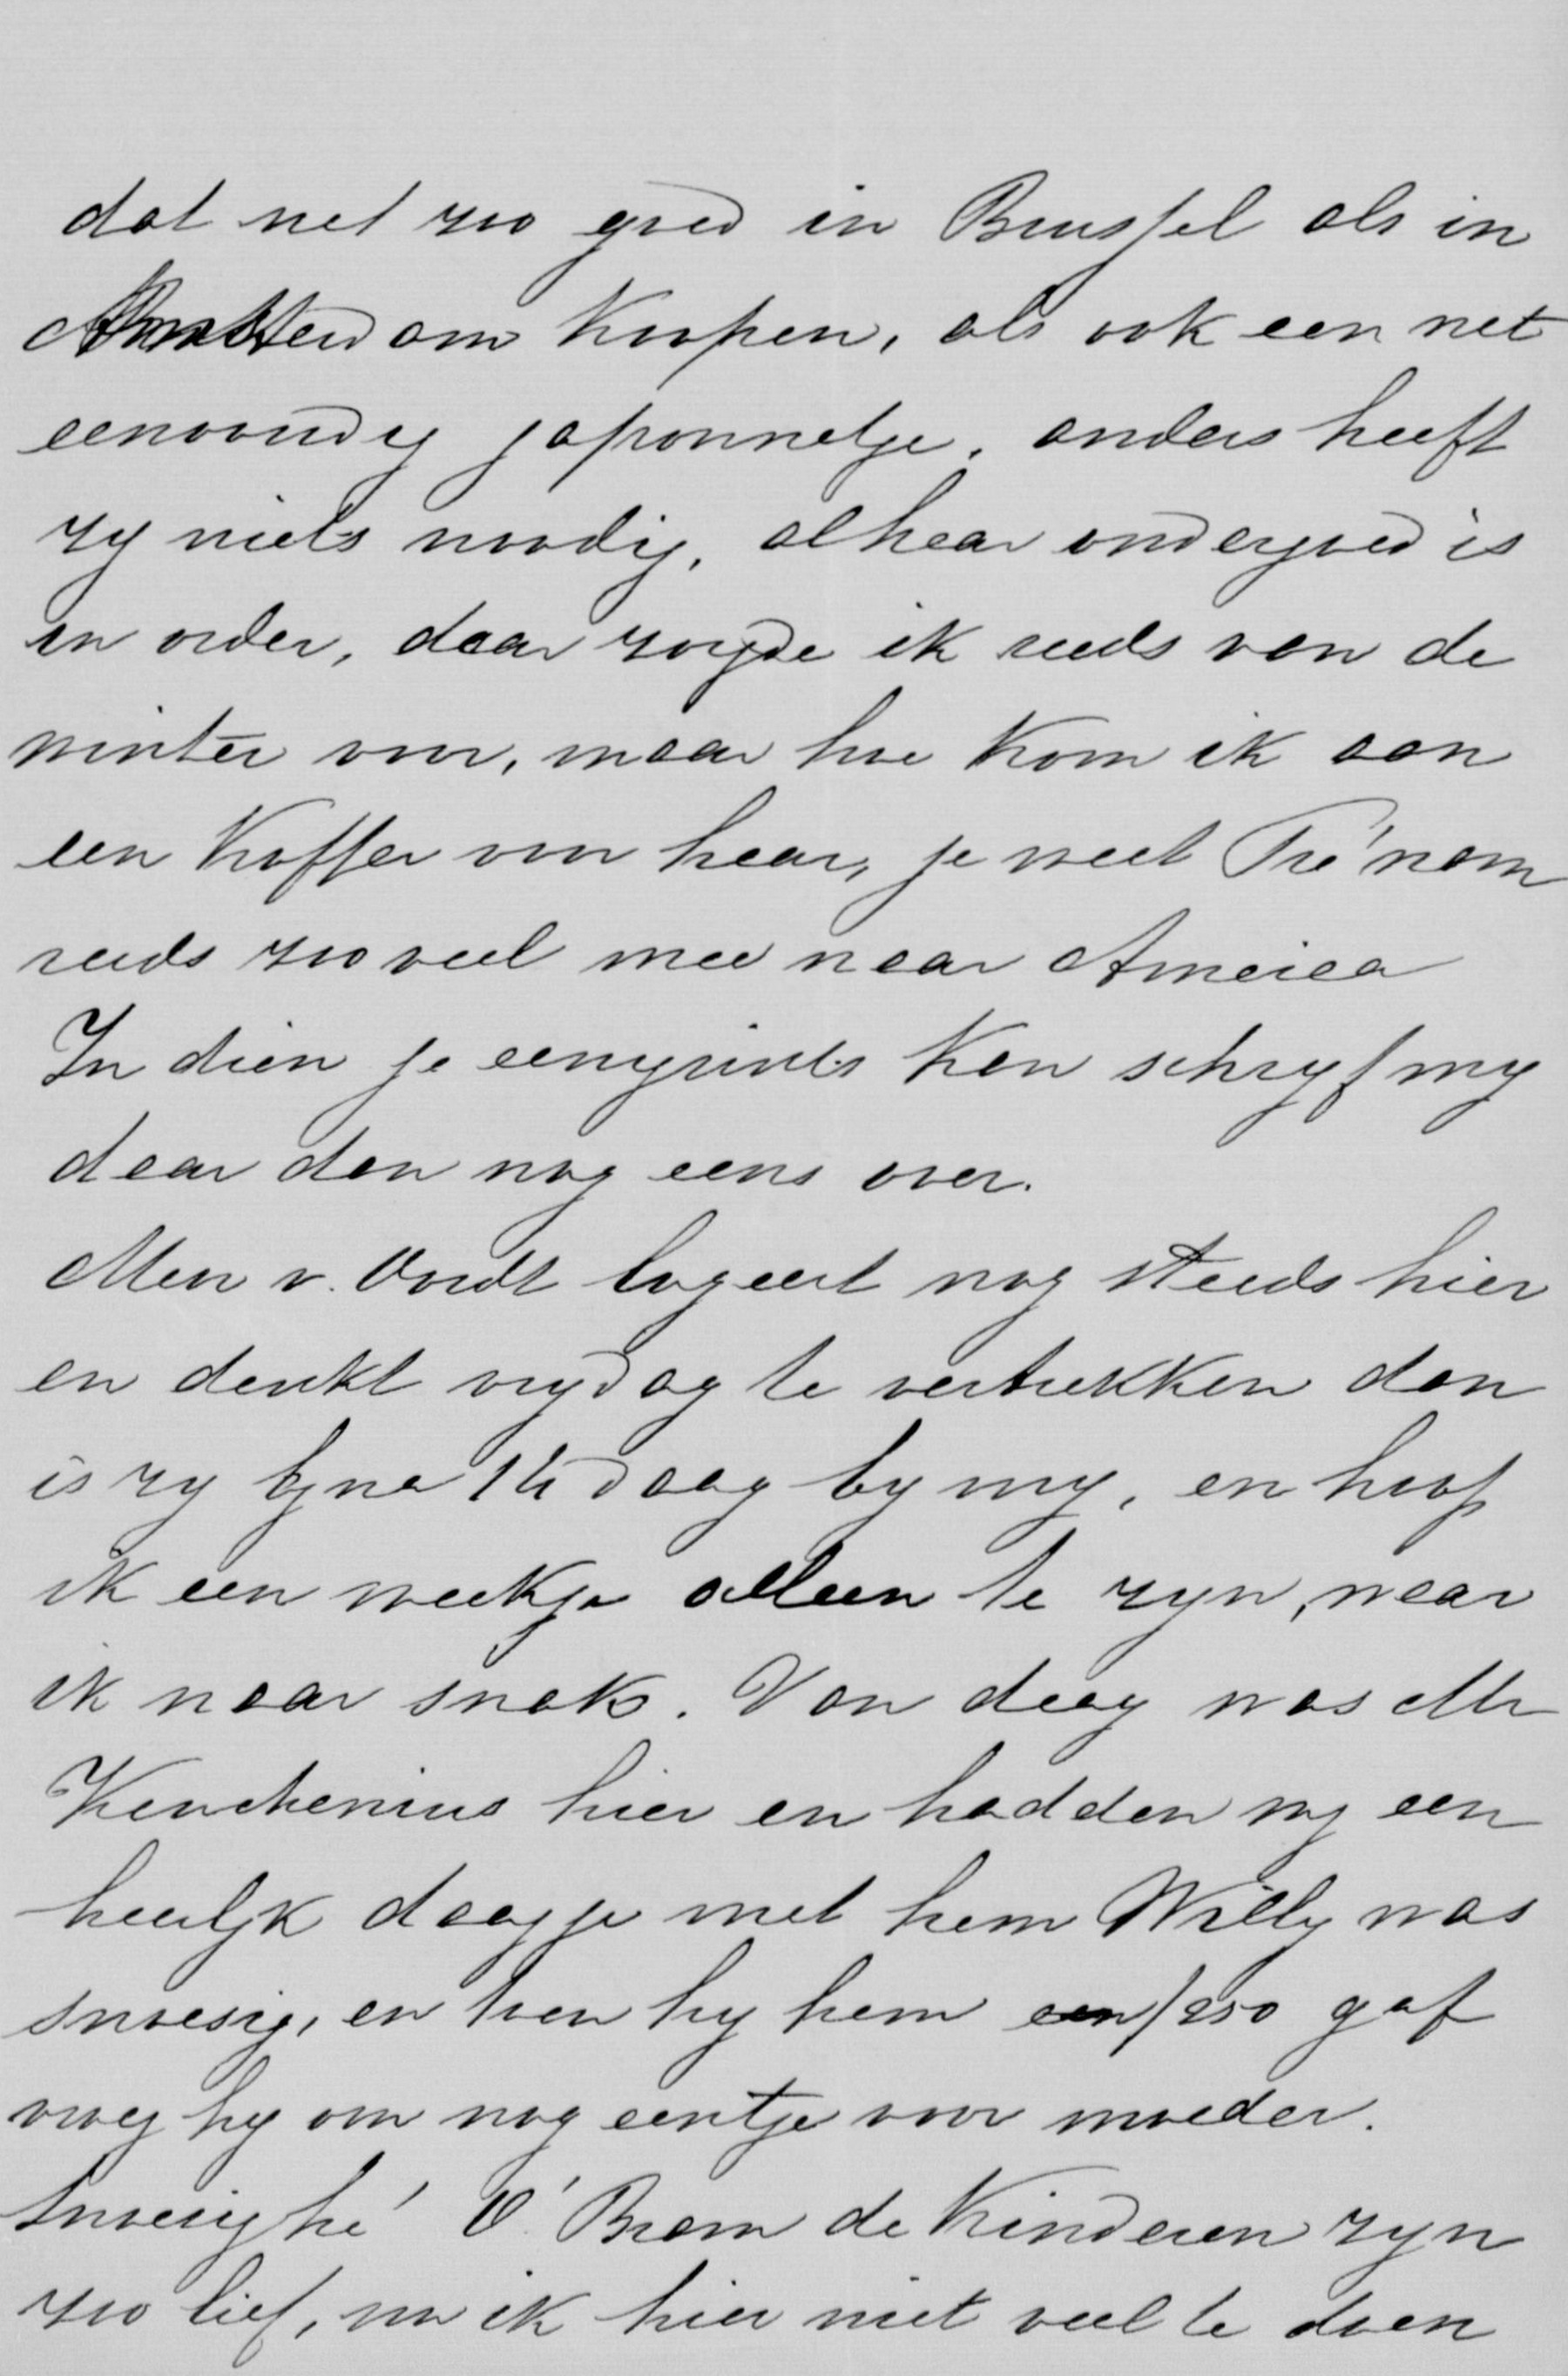 dat net zoo goed in Brussel als in
Amsterdam koopen, als ook een net
eenvoudig japonnetje, anders heeft
zy niets noodig, al haar ondergoed is
in order, daar zorgde ik reeds van de
winter voor, maar hoe kom ik aan
een koffer voor haar, je weet Tré nam
reeds zoo veel mee naar America
In dien je eenigzints kan schryf my
daar dan nog eens over.
Mevr v. Oordt logeert nog steeds hier
en denkt vrydag te vertrekken dan
is zy byna 14 daag by my, en hoop
ik een weekje alleen te zyn, waar
ik naar snak. Van daag was Mr
Keuchenius hier en hadden wy een
heerlyk daagje met hem Willy was
snoezig, en toen hy hem een f250 gaf
vroeg hy om nog eentje voor moeder.
Snoezig hé O! Bram de kinderen zyn
zoo lief, nu ik hier niet veel te doen